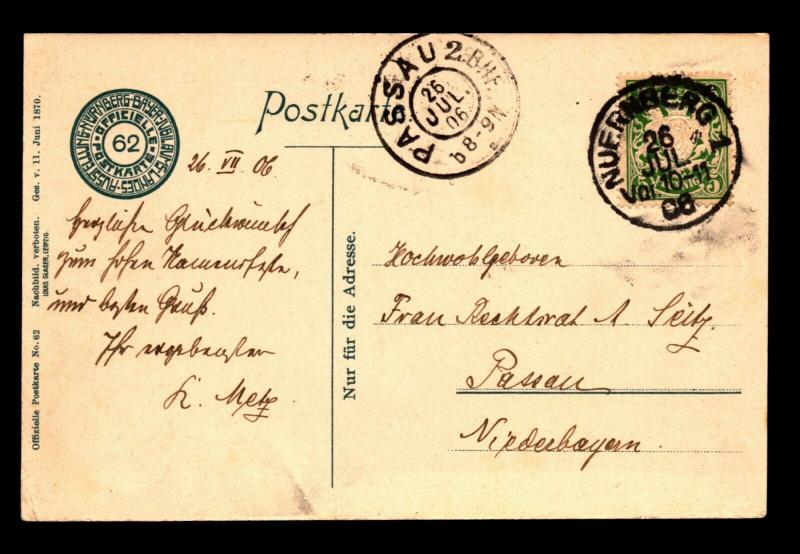 Offizielle Postkarte No. 62 Nachbild. verboten. Ges. v. 11. Juni 1870.
LOUIS GLASER, LEIPZIG.
NÜRNBERG-BAYR-JUBILÄUMS-LANDES-AUSSTELLUNG
OFFICIELLE POSTKARTE
62
Postkarte
26. VII. 06.
Herzliche Glückwünsche
zum hohen Namensfeste,
und besten Gruß.
Ihr ergebenster
K. Metz
Nur für die Adresse.
PASSAU 2. BHF.
26
JUL.
06
8-9N
NUERNBERG 1
26
JUL
Vor. 10-11
06
5
Hochwohlgeboren
Frau Rechtsrat A. Seitz
Passau
Niederbayern.